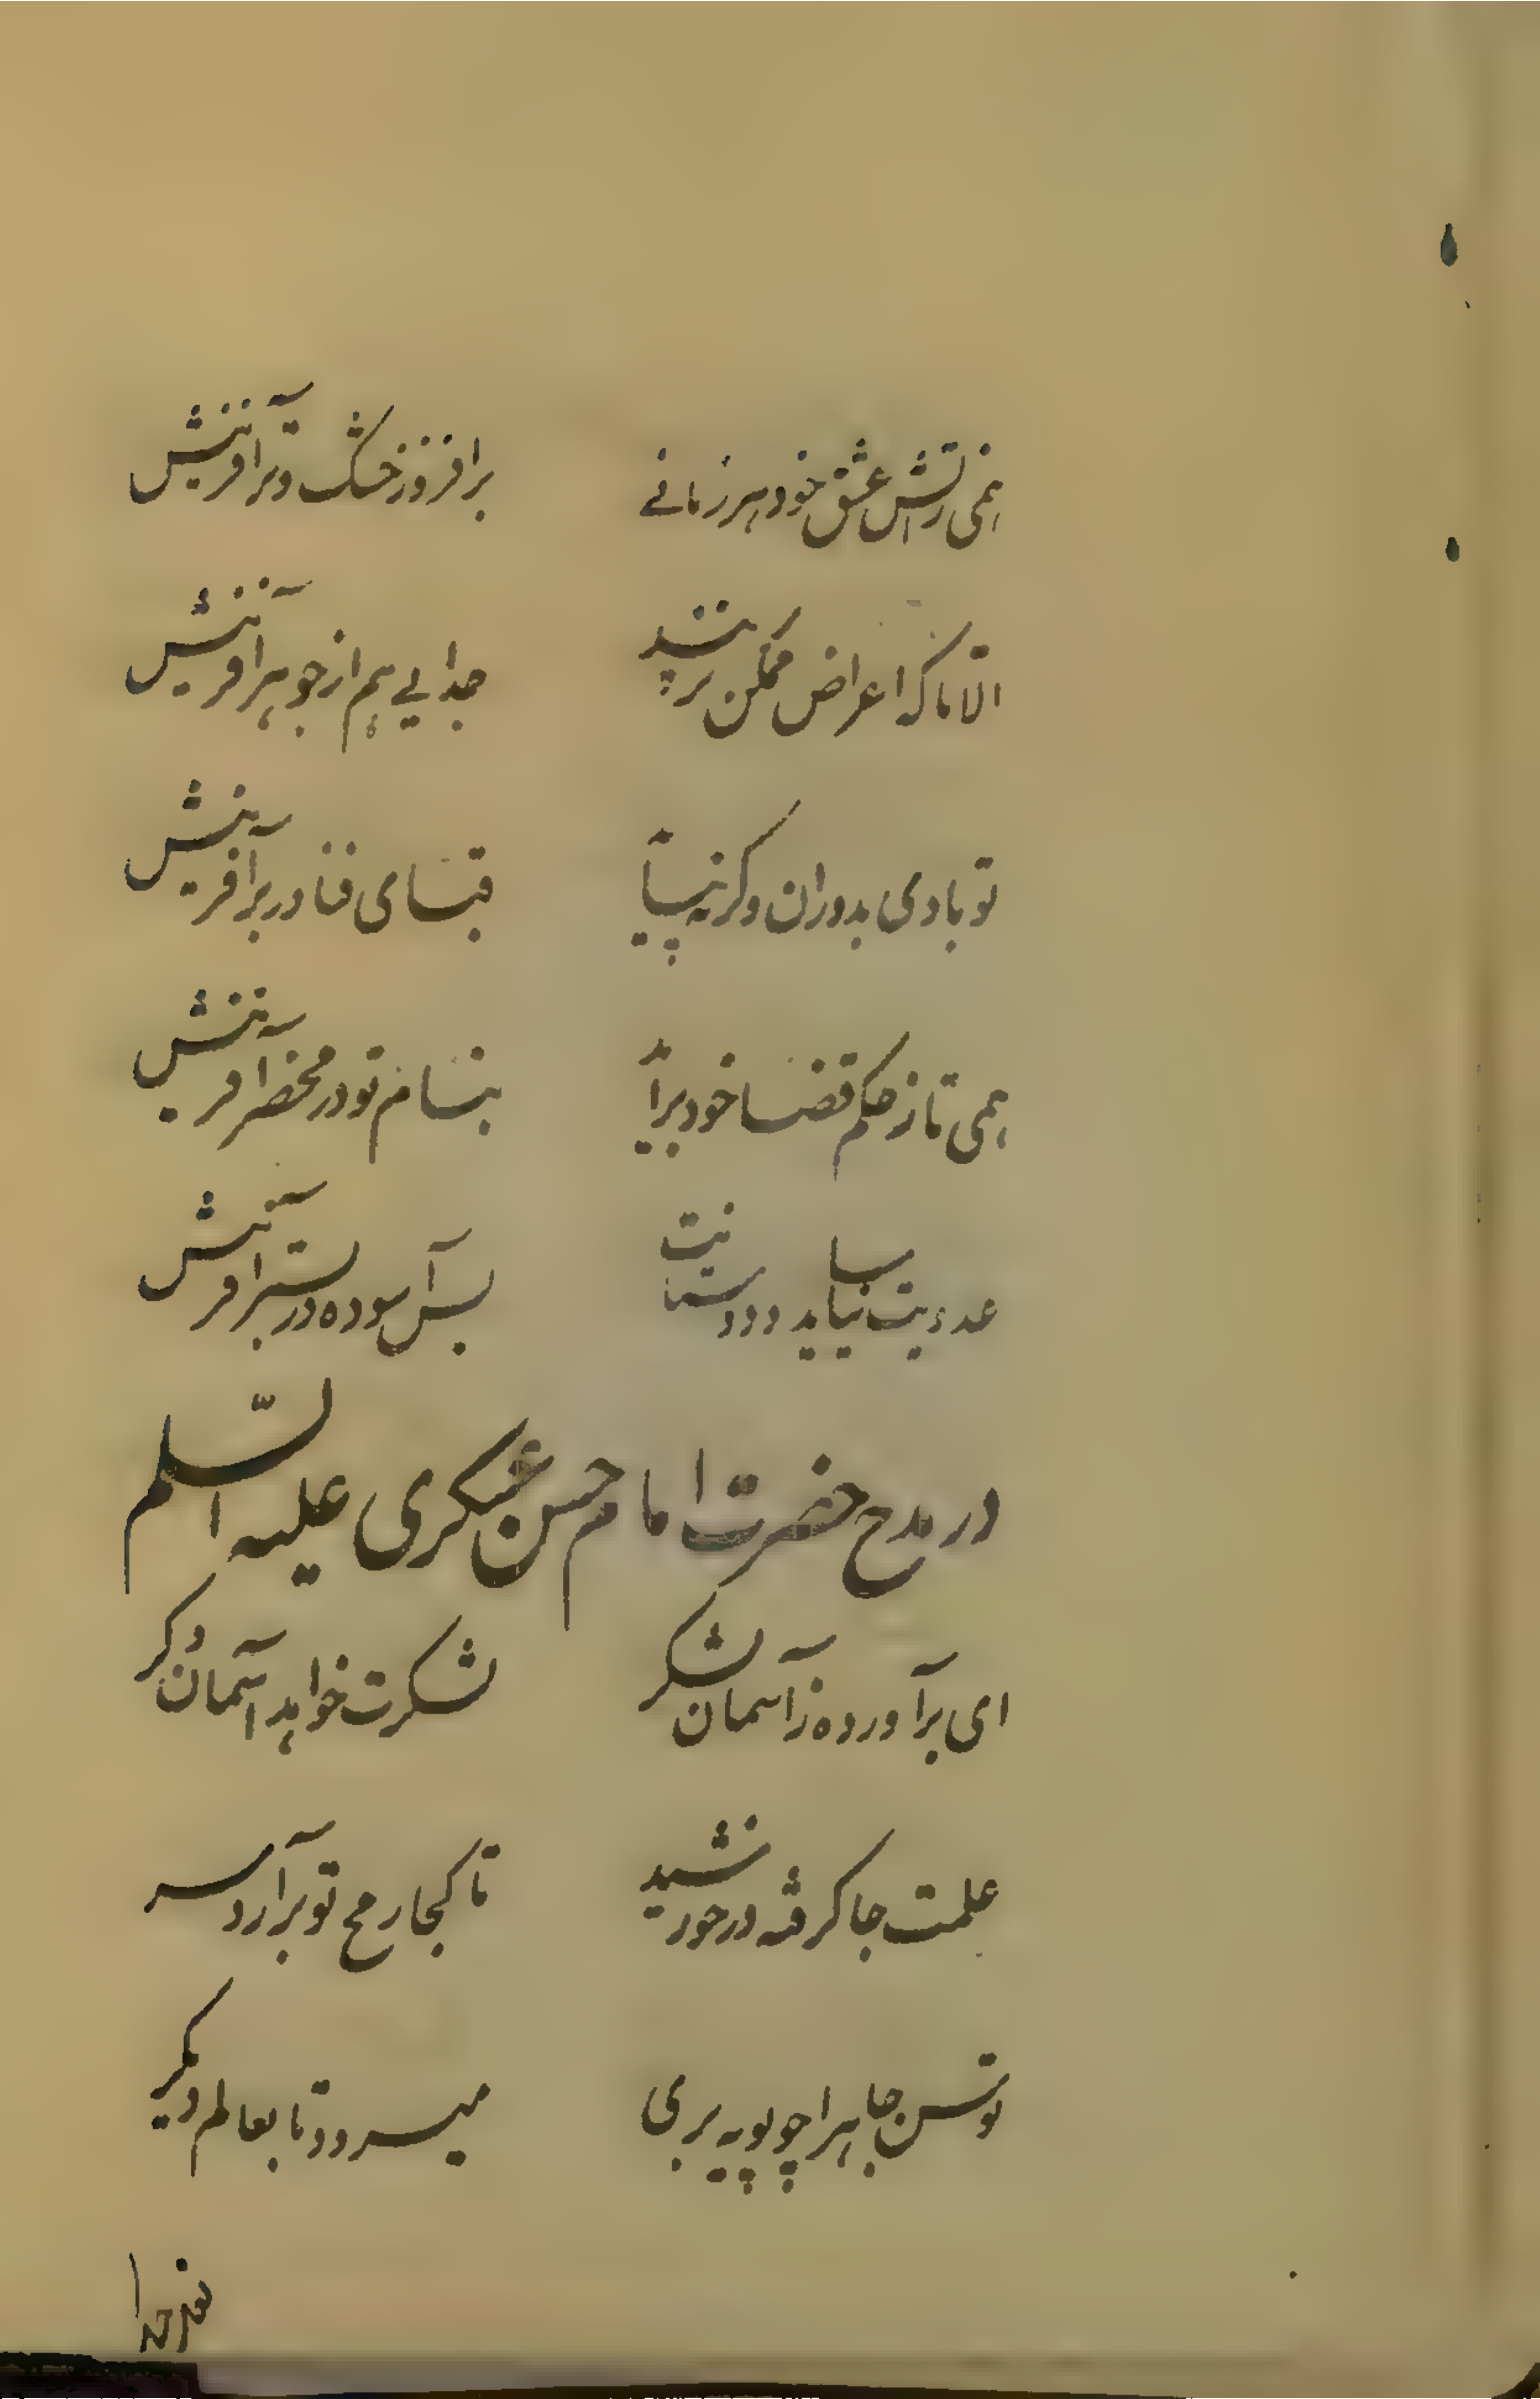 همی زاتش عشق خود هر زمانے برافروز خشک و تر آفرینش
الا تا که اعراض ممکن نپرسند جدایے هم از جوهر آفرینش
تو بادی بدوران و کر نه بیاید قبای فنا در بر آفرینش
همی تا ز حکم قضا خود برآید بنام تو در محضر آفرینش
نیاساید و دوستانت بس آسوده در بستر آفرینش
در مدح حضرت امام حسن عسکری علیه السّلم
ای برآورده ز آسمان لشکر لشکرت خواهد آسمان دکر
علمت جا کرفته در خورشید تا کجا رمح تو برآرد سر
توسن جاه را چو پویه بری میرود تا بعالم دیکر